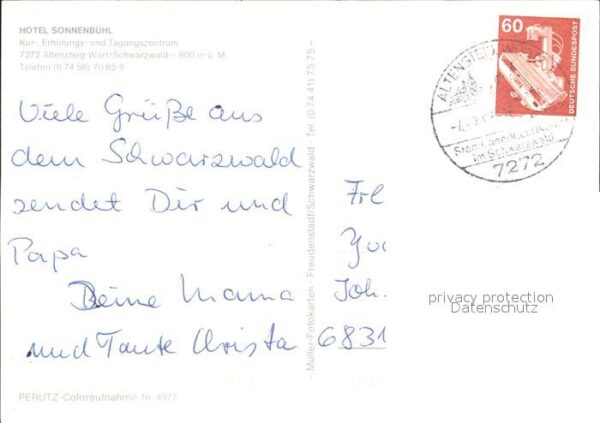 HOTEL SONNENBÜHL
Kur-, Erholungs- und Tagungszentrum
7272 Altensteig-Wart/Schwarzwald – 600 m ü. M.
Telefon (0 74 58) 70 85-9
Viele Grüße aus
dem Schwarzwald
sendet Dir und
Papa
Deine Mama
und Tante Christa
PERUTZ-Coloraufnahme Nr. 4977
– Müller-Fotokarten – Freudenstadt/Schwarzwald – Tel. (0 74 41) 75 75 –
60
DEUTSCHE BUNDESPOST
ALTENSTEIG
im Schwarzwald
7272
Joh.
6831
privacy protection
Datenschutz